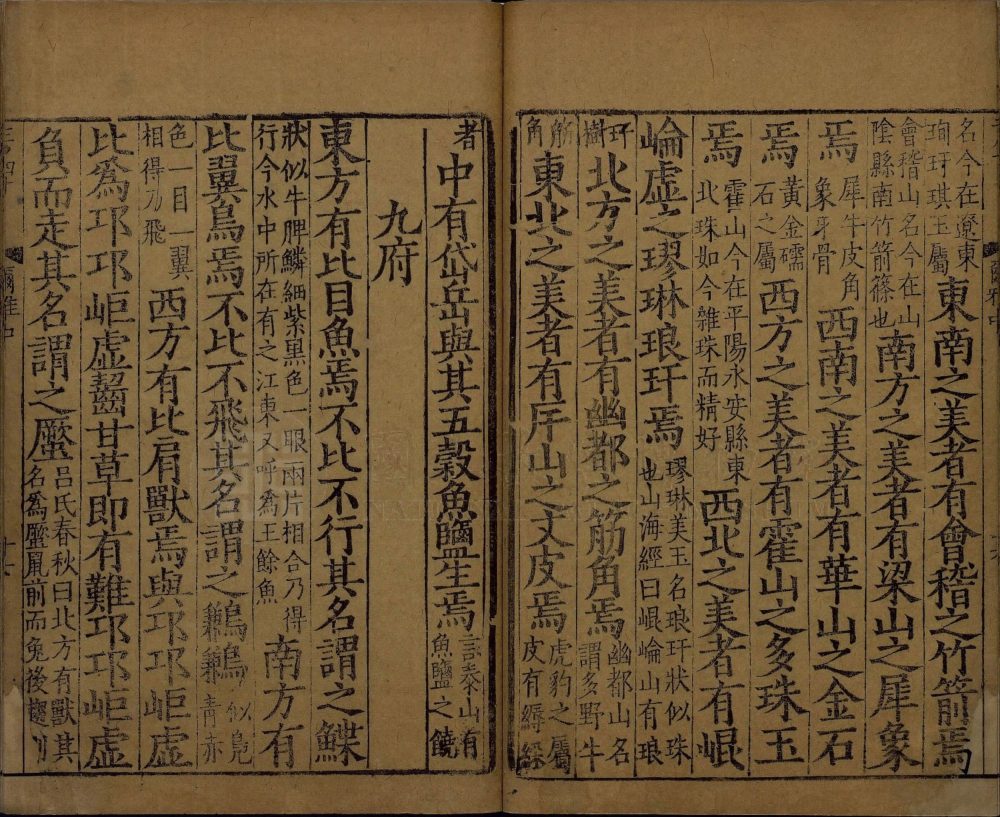 名今在遼東珣玗琪玉屬東南之美者有會稽之竹箭焉
會稽山名今在山陰縣南竹箭篠也南方之美者有梁山之犀象
焉犀牛皮角象身骨西南之美者有華山之金石
焉黃金礝石之屬西方之美者有霍山之多珠玉
焉霍山今在平陽永安縣東北珠如今雜珠而精好西北之美者有崐
崘虛之璆琳琅玕焉璆琳美玉名琅玕狀似珠也山海經曰崐崘山有琅
玕樹北方之美者有幽都之筋角焉幽都山名謂多野牛
筋角東北之美者有斥山之文皮焉虎豹之屬皮有縟綵
者中有岱岳與其五穀魚鹽生焉言泰山有魚鹽之饒
九府
東方有比目魚焉不比不行其名謂之鰈
狀似牛脾鱗細紫黑色一眼兩片相合乃得行今水中所在有之江東又呼為王餘魚南方有
比翼鳥焉不比不飛其名謂之鶼鶼似鳧青赤
色一目一翼相得乃飛西方有比肩獸焉與邛邛岠虛
比為邛邛岠虛齧甘草即有難邛邛岠虛
負而走其名謂之蟨呂氏春秋曰北方有獸其名為蟨鼠前而兔後趨則
爾雅中